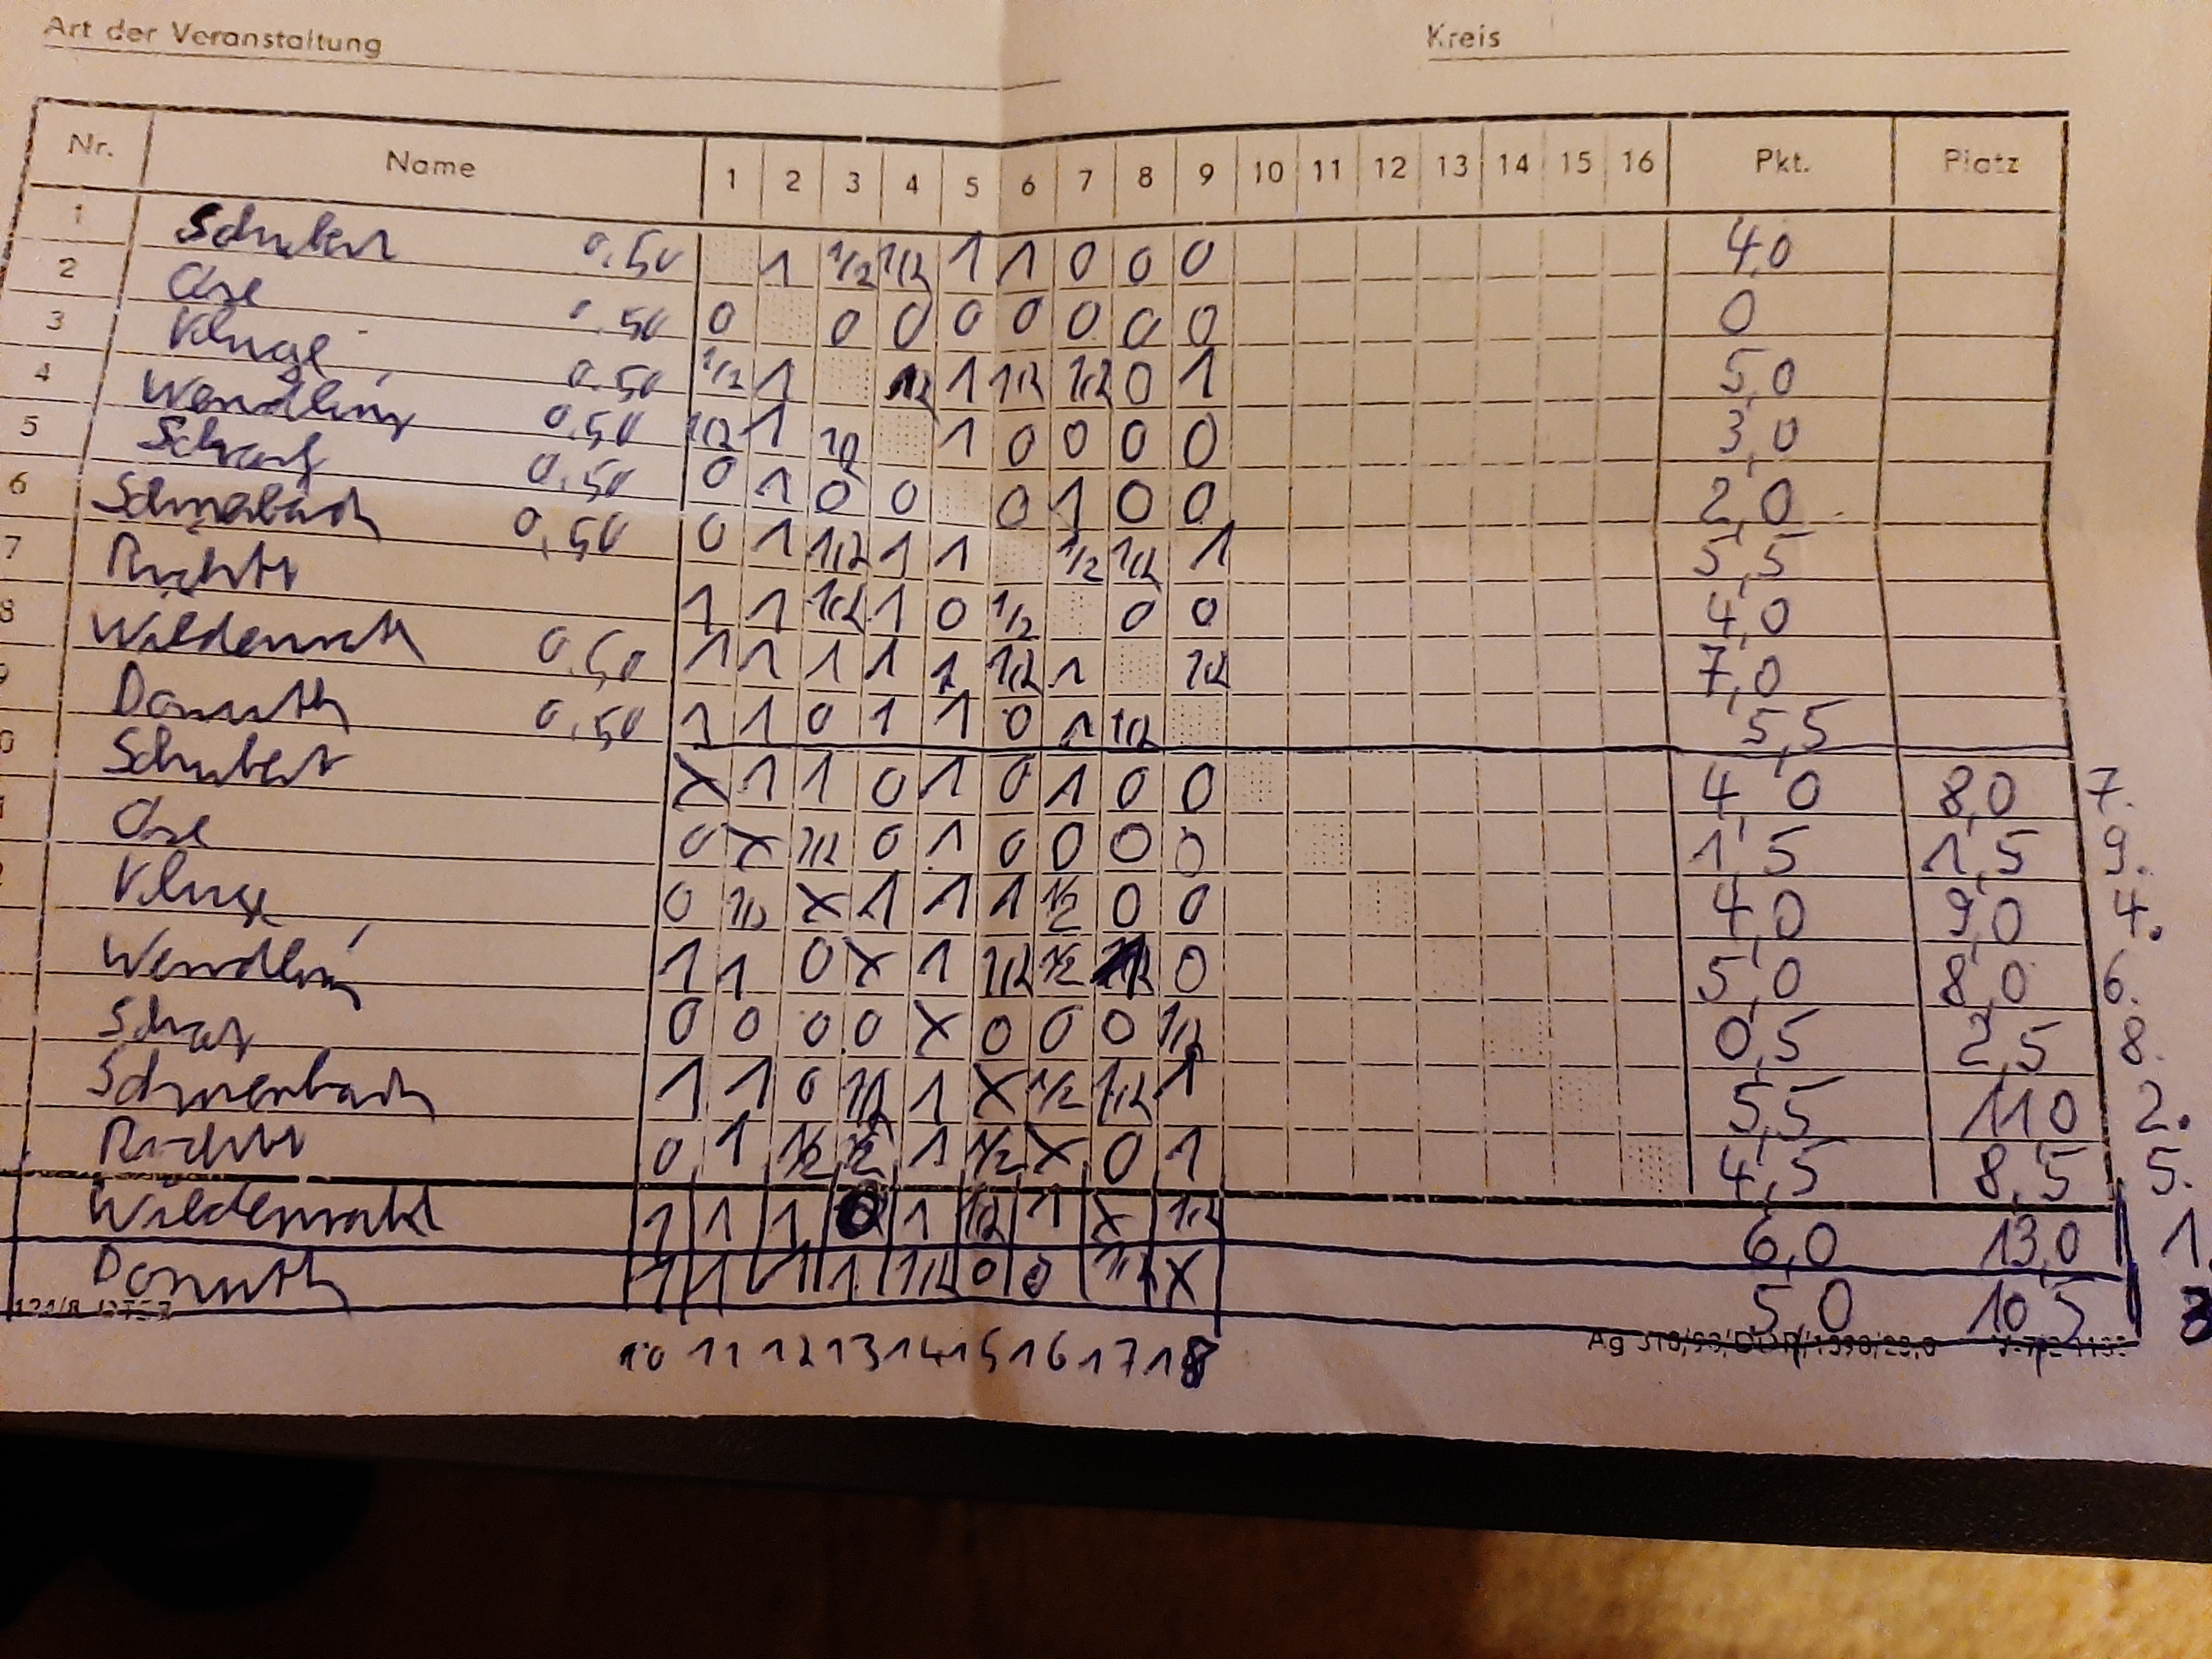 Art der Veranstaltung Kreis
Nr. Name 1 2 3 4 5 6 7 8 9 10 11 12 13 14 15 16 Pkt. Platz
1 Schubert 0.50 1 1/2 1/2 1 1 0 0 0 4,0
2 Ose 0.50 0 0 0 0 0 0 0 0 0
3 Kluge 0.50 1/2 1 1/2 1 1/2 1/2 0 1 5,0
4 Wendling 0,50 1/2 1 1/2 1 0 0 0 0 3,0
5 0,50 0 1 0 0 0 1 0 0 2,0
6 0,50 0 1 1/2 1 1 1/2 1/2 1 5,5
7 Richter 1 1 1/2 1 0 1/2 0 0 4,0
8 Wildenrath 0.50 1 1 1 1 1 1/2 1 1/2 7,0
9 Domuth 0,50 1 1 0 1 1 0 1 1/2 5,5
0 Schubert X 1 1 0 1 0 1 0 0 4,0 8,0 7.
Ose 0 X 1/2 0 1 0 0 0 0 1,5 1,5 9.
Kluge 0 1/2 X 1 1 1 1/2 0 0 4,0 9,0 4.
Wendling 1 1 0 X 1 1/2 1/2 0 5,0 8,0 6.
0 0 0 0 X 0 0 0 1/2 0,5 2,5 8.
1 1 0 1/2 1 X 1/2 1/2 1 5,5 11,0 2.
Richter 0 1 1/2 1/2 1 1/2 X 0 1 4,5 8,5 5.
Wildenrath 1 1 1 1 1/2 1 X 1/2 6,0 13,0 1.
Domuth 1 1 1 1 1/2 0 0 1/2 X 5,0 10,5 3
10 11 12 13 14 15 16 17 18